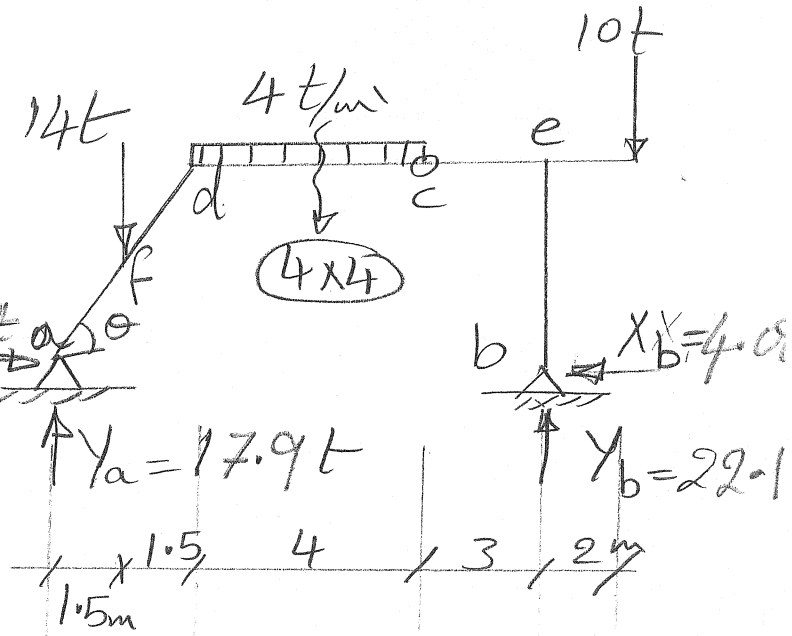 10t
4 t/m'
14t
e
d
c
f
4x4
a
θ
b
X
b=4.0
Ya=17.9t
Yb=22.1
1.5
4
3
2m
1.5m